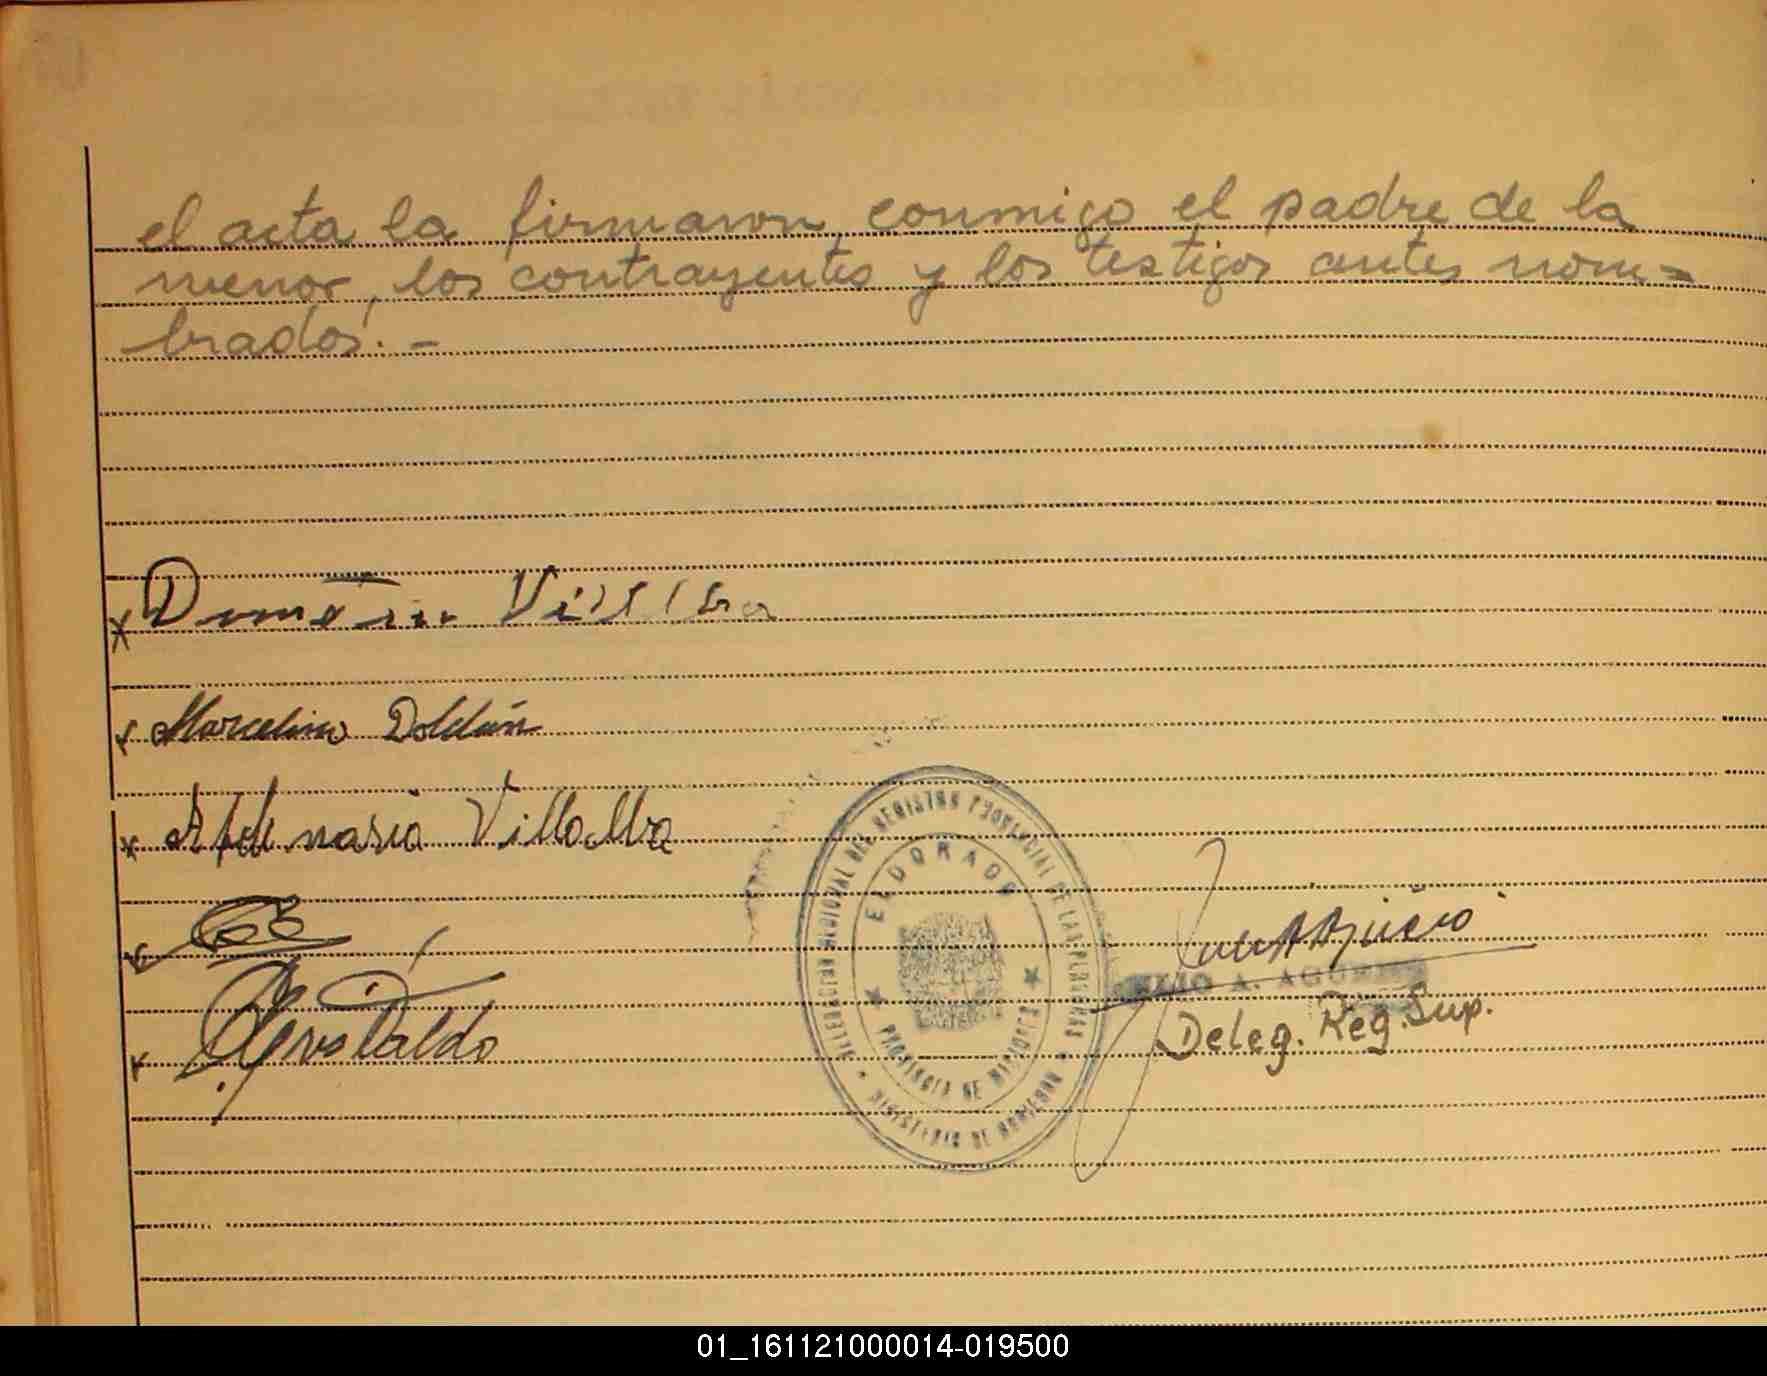 el acta la firmaron conmigo el padre de la
menor, los contrayentes y los testigos antes nom=
brados. -
Villlba
Marcelino Doldán
Villalba
DELEGACION REGIONAL DEL REGISTRO PROVINCIAL DE LAS PERSONAS
ELDORADO
PROVINCIA DE MISIONES
MINISTERIO DE GOBIERNO
A.
Deleg. Reg. Sup.
01_161121000014-019500